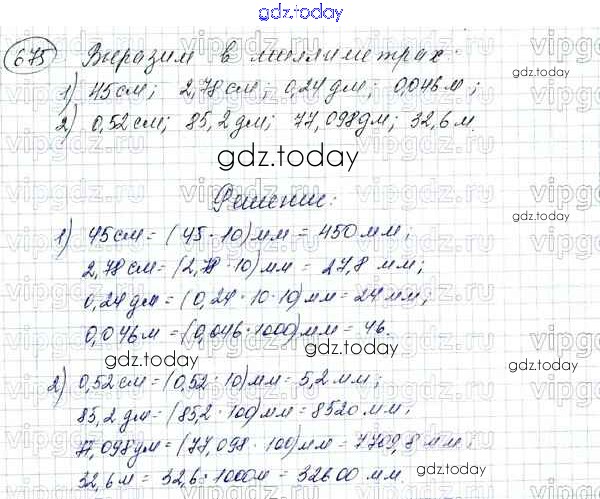 gdz.today
675 Выразим в миллиметрах:
1) 45 см; 2,78 см; 0,24 дм; 0,046 м;
gdz.today
2) 0,52 см; 85,2 дм; 77,098 дм; 32,6 м.
gdz.today
gdz.today
Решение:
gdz.today
1) 45 см = (45 · 10) мм = 450 мм;
2,78 см = (2,78 · 10) мм = 27,8 мм;
0,24 дм = (0,24 · 10 · 10) мм = 24 мм;
0,046 м = (0,046 · 1000) мм = 46.
gdz.today
gdz.today
2) 0,52 см = (0,52 · 10) мм = 5,2 мм;
85,2 дм = (85,2 · 100) мм = 8520 мм;
77,098 дм = (77,098 · 100) мм = 7709,8 мм;
32,6 м = 32,6 · 1000 м = 32600 мм.
gdz.today